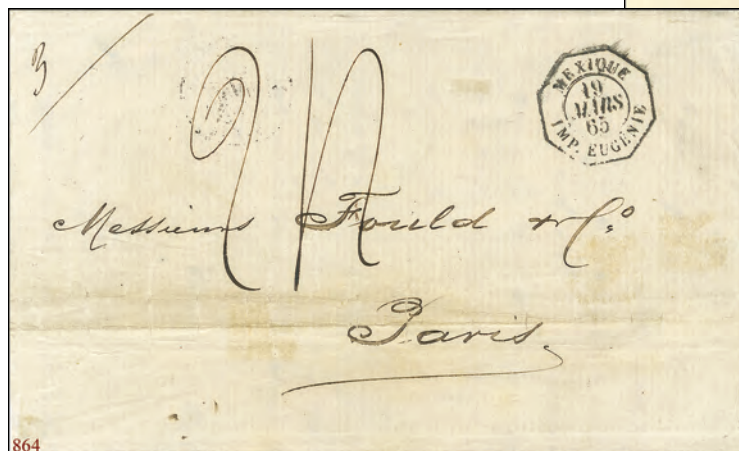 3/
MEXIQUE
19
MARS
65
IMP. EUGENIE
Messieurs Fould & Co
Paris.
864